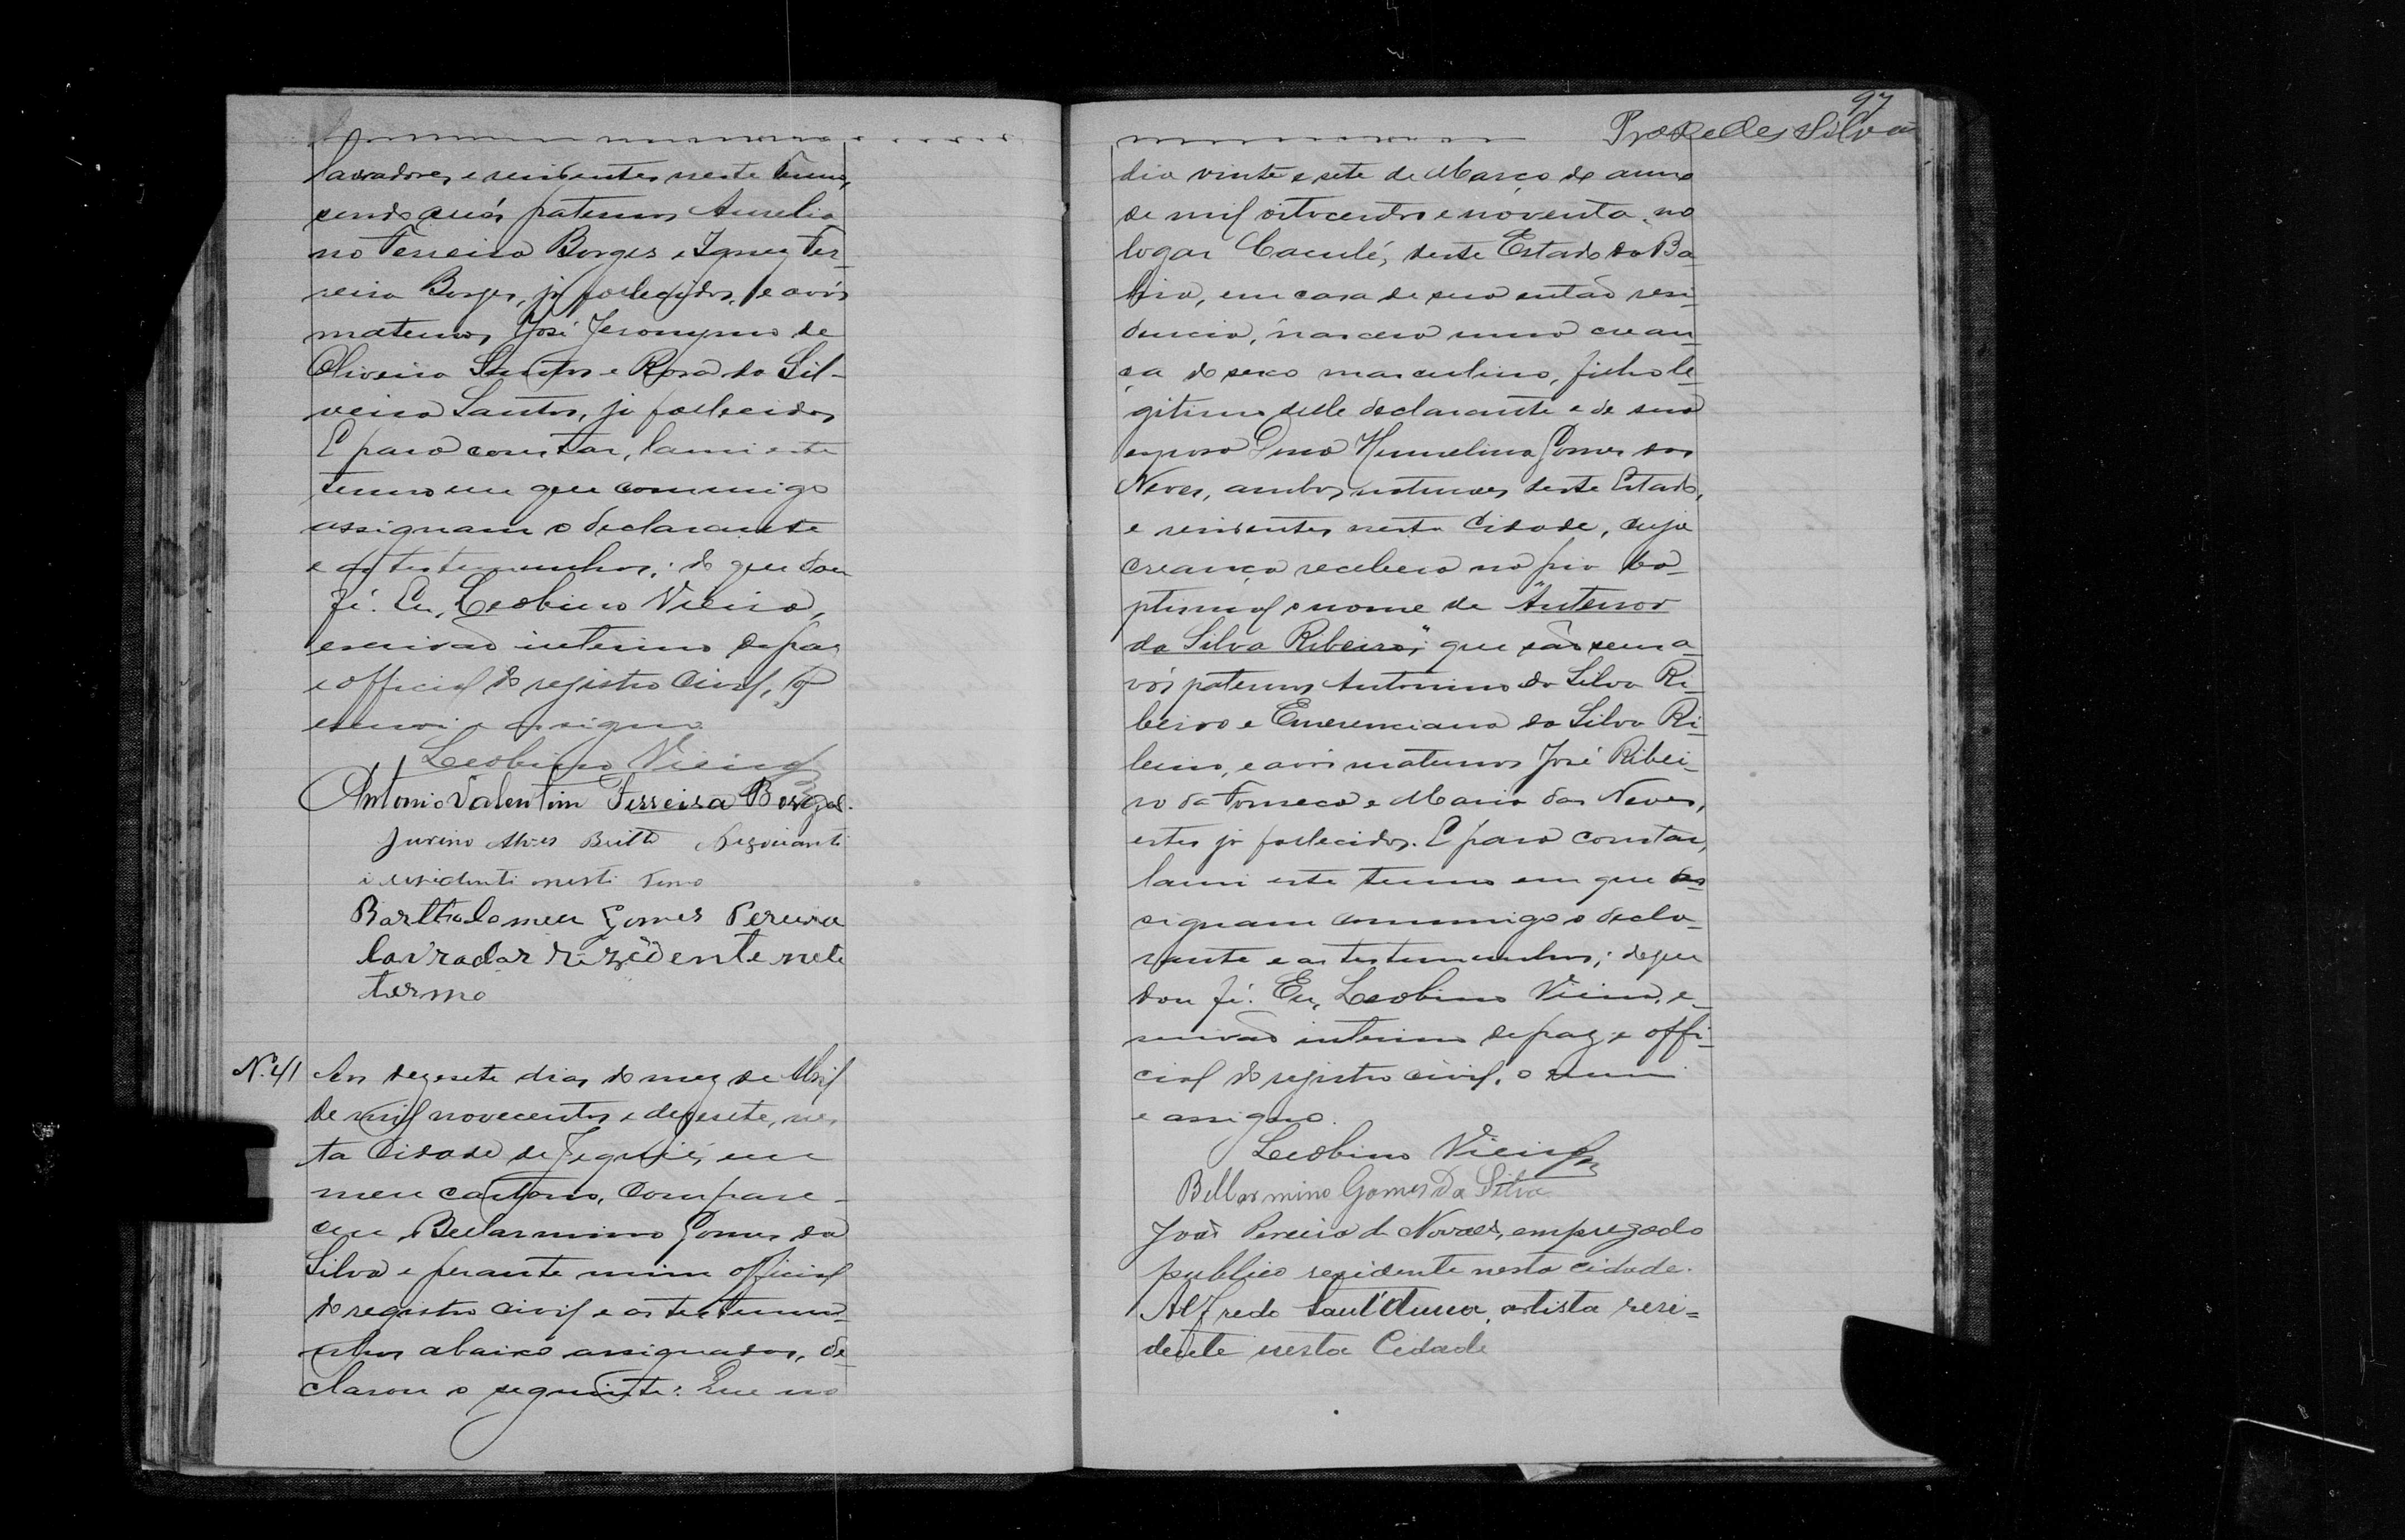 lavradores e residentes neste termo,
sendo avós paternos Aurelia
no Ferreira Borges e Ignez Fer-
reira Borges, já fallecidos, e avós
maternos José Jeronymo de
Oliveira Santos e Rosa da Sil-
veira Santos, já fallecidos
E para constar, lavrei este
termo em que commigo
assignam o declarante
e as testemunhas; do que dou
fé. Eu, Leobino Vieira,
escrivão interino de paz
e official do registro civil, o
escrevi e assigno.
Leobino Vieira
Antonio Valentim Ferreira Borges.
Juvino Alves Britto Negociante
i residenti nesti termo
Bartholomeu Gomes Pereira
lavrador rezidente nete
termo
N. 41 Aos dezesete dias do mez de Abril
de mil novecentos e dezesete, nes
ta Cidade de Jequié, em
meu cartorio, compare-
ceu Bellarmino Gomes da
Silva e perante mim official
do registro civil e as testemu-
nhas abaixo assignadas, de-
clarou o seguinte: Que no
97
Praxedes Silva
dia vinte e sete de Março do anno
de mil oitocentos e noventa, no
logar Caculé, deste Estado da Ba-
hia, em casa de sua então resi-
dencia, nasceu uma crean-
ça do sexo masculino, filho le-
gitimo delle declarante e de sua
esposa Dona Hermelina Gomes das
Neves, ambos naturaes deste Estado,
e residentes nesta Cidade, cuja
creança recebeu na pia ba-
ptismal o nome de "Antenor
da Silva Ribeiro"; que são seus a-
vós paternos Antonino da Silva Ri-
beiro e Emerenciana da Silva Ri-
beiro, e avós maternos José Ribei-
ro da Fonseca e Maria das Neves,
estes já fallecidos. E para constar,
lavrei este termo em que as-
signam commigo o decla-
rante e as testemunhas; do que
dou fé. Eu, Leobino Vieira, es-
crivão interino de paz e offi-
cial do registro civil, o escrevi
e assigno.
Leobino Vieira
Bellarmino Gomes Da Silva
João Pereira de Novaes, empregado
publico residente nesta cidade.
Alfredo Sant'Anna, artista resi=
dente nesta Cidade